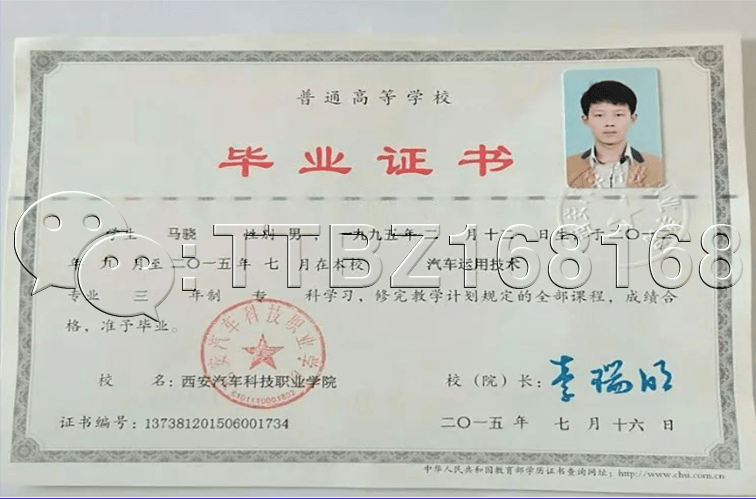 普通高等学校
毕业证书
学生 马骁 性别 男，一九九五年二月十二日生，于二〇一二
年九月至二〇一五年七月在本校 汽车运用技术
:TTBZ168168
专业 三年制 专科学习，修完教学计划规定的全部课程，成绩合
格，准予毕业。
西安汽车科技职业学院
校 名：西安汽车科技职业学院 校（院）长：李瑞明
证书编号：137381201506001734 二〇一五年 七月十六日
中华人民共和国教育部学历证书查询网址：http://www.chsi.com.cn